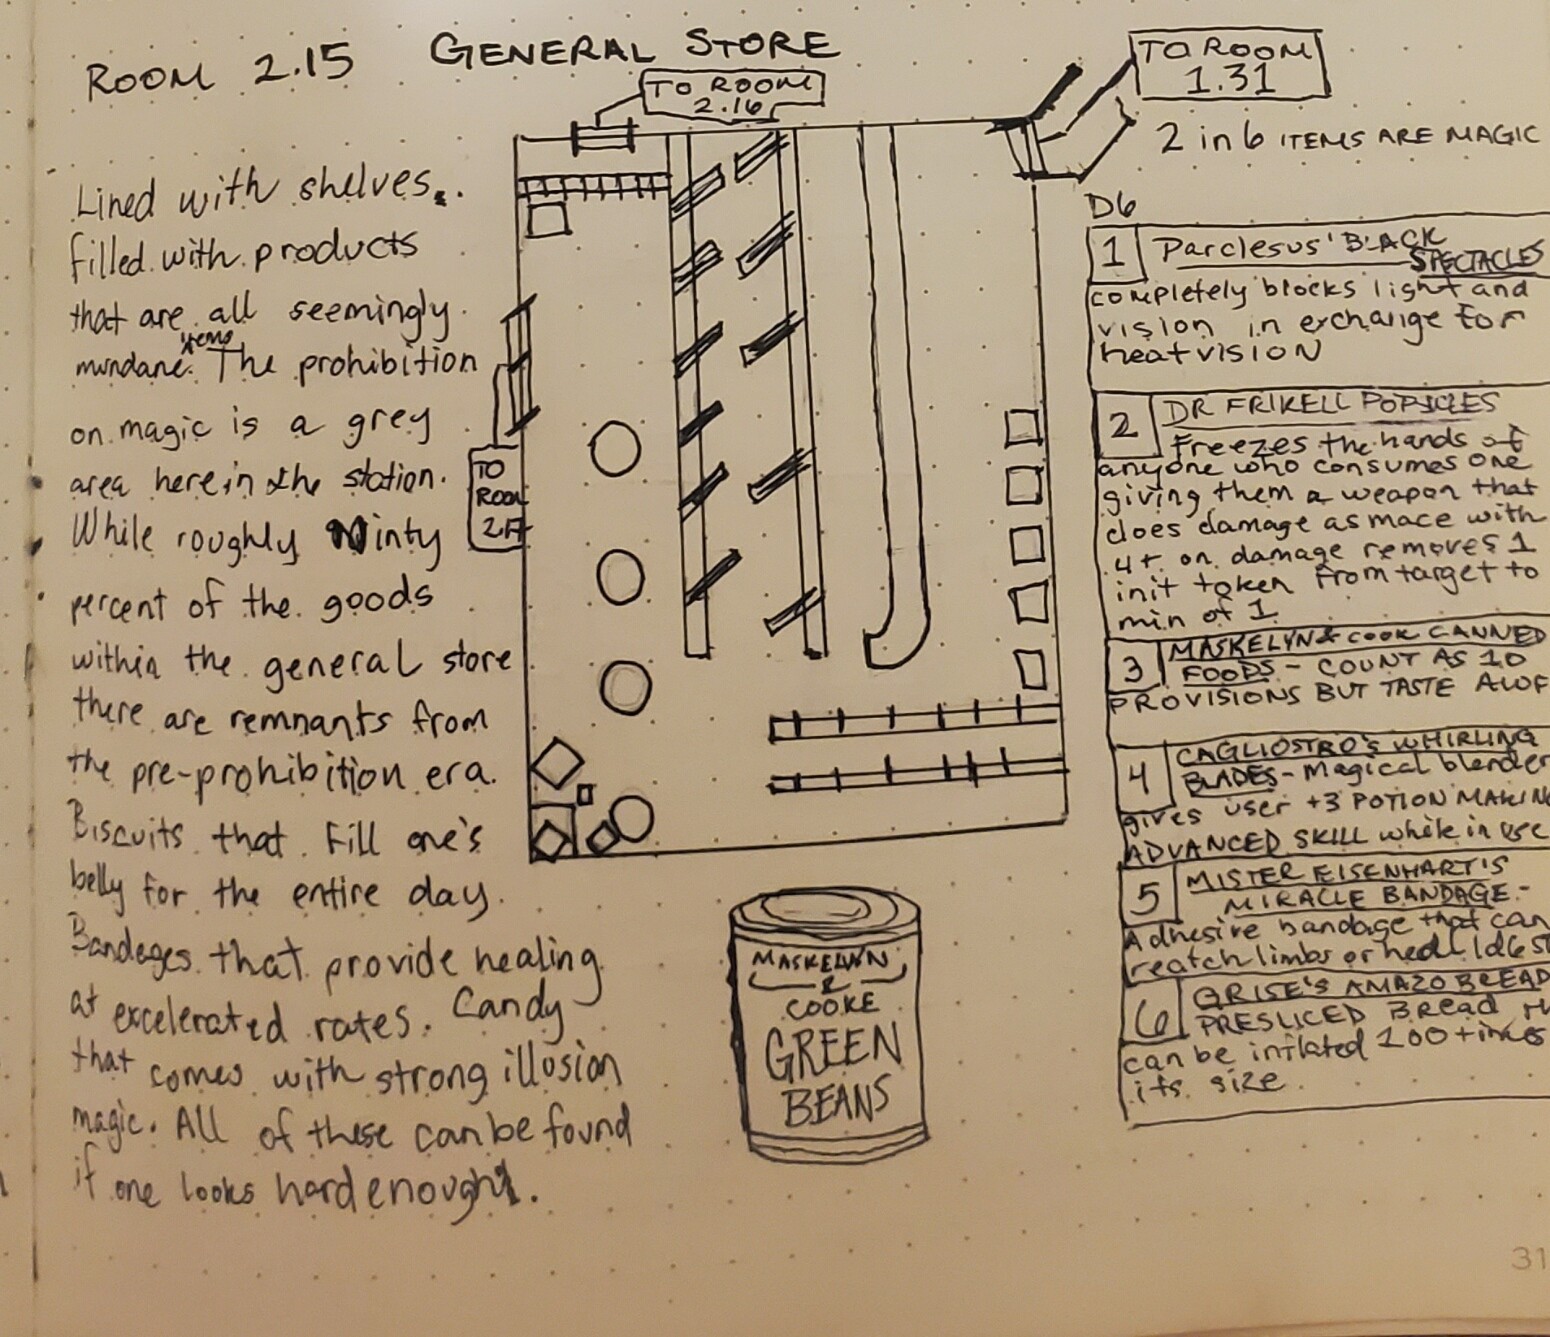 ROOM 2.15 GENERAL STORE
Lined with shelves.
filled with products
that are all seemingly
mundane items. The prohibition
on magic is a grey
area here in the station.
While roughly Ninty
percent of the goods
within the general store
there are remnants from
the pre-prohibition era.
Biscuits that fill one's
belly for the entire day.
Bandages that provide healing
at excelerated rates. Candy
that comes with strong illusion
magic. All of these can be found
if one looks hard enough.
TO ROOM
2.16
TO ROOM
1.31
TO
ROOM
2.17
MASKELYN
&
COOKE
GREEN
BEANS
2 in 6 ITEMS ARE MAGIC
D6
1 Parclesus' BLACK
SPECTACLES
completely blocks light and
vision in exchange for
heat vision
2 DR FRIKELL POPSICLES
Freezes the hands of
anyone who consumes one
giving them a weapon that
does damage as mace with
4+ on damage removes 1
init token from target to
min of 1
3 MASKELYN & COOK CANNED
FOODS - COUNT AS 10
PROVISIONS BUT TASTE
4 CAGLIOSTRO'S WHIRLING
BLADES - Magical blender
gives user +3 POTION MAKING
ADVANCED SKILL while in use
5 MISTER EISENHART'S
MIRACLE BANDAGE -
Adhesive bandage that can
reatch limbs or heal 1d6
6 GRISE'S AMAZO BREAD
PRESLICED Bread
can be inflated 100 times
its size
31